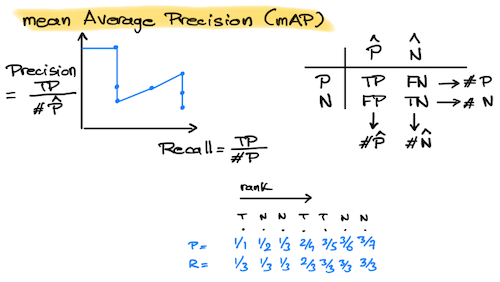 mean Average Precision (mAP)
Precision
= TP
#P̂
Recall = TP
#P
P̂ N̂
P TP FN → #P
N FP TN → #N
↓ ↓
#P̂ #N̂
rank
T N N T T N N
P = 1/1 1/2 1/3 2/4 3/5 3/6 3/7
R = 1/3 1/3 1/3 2/3 3/3 3/3 3/3